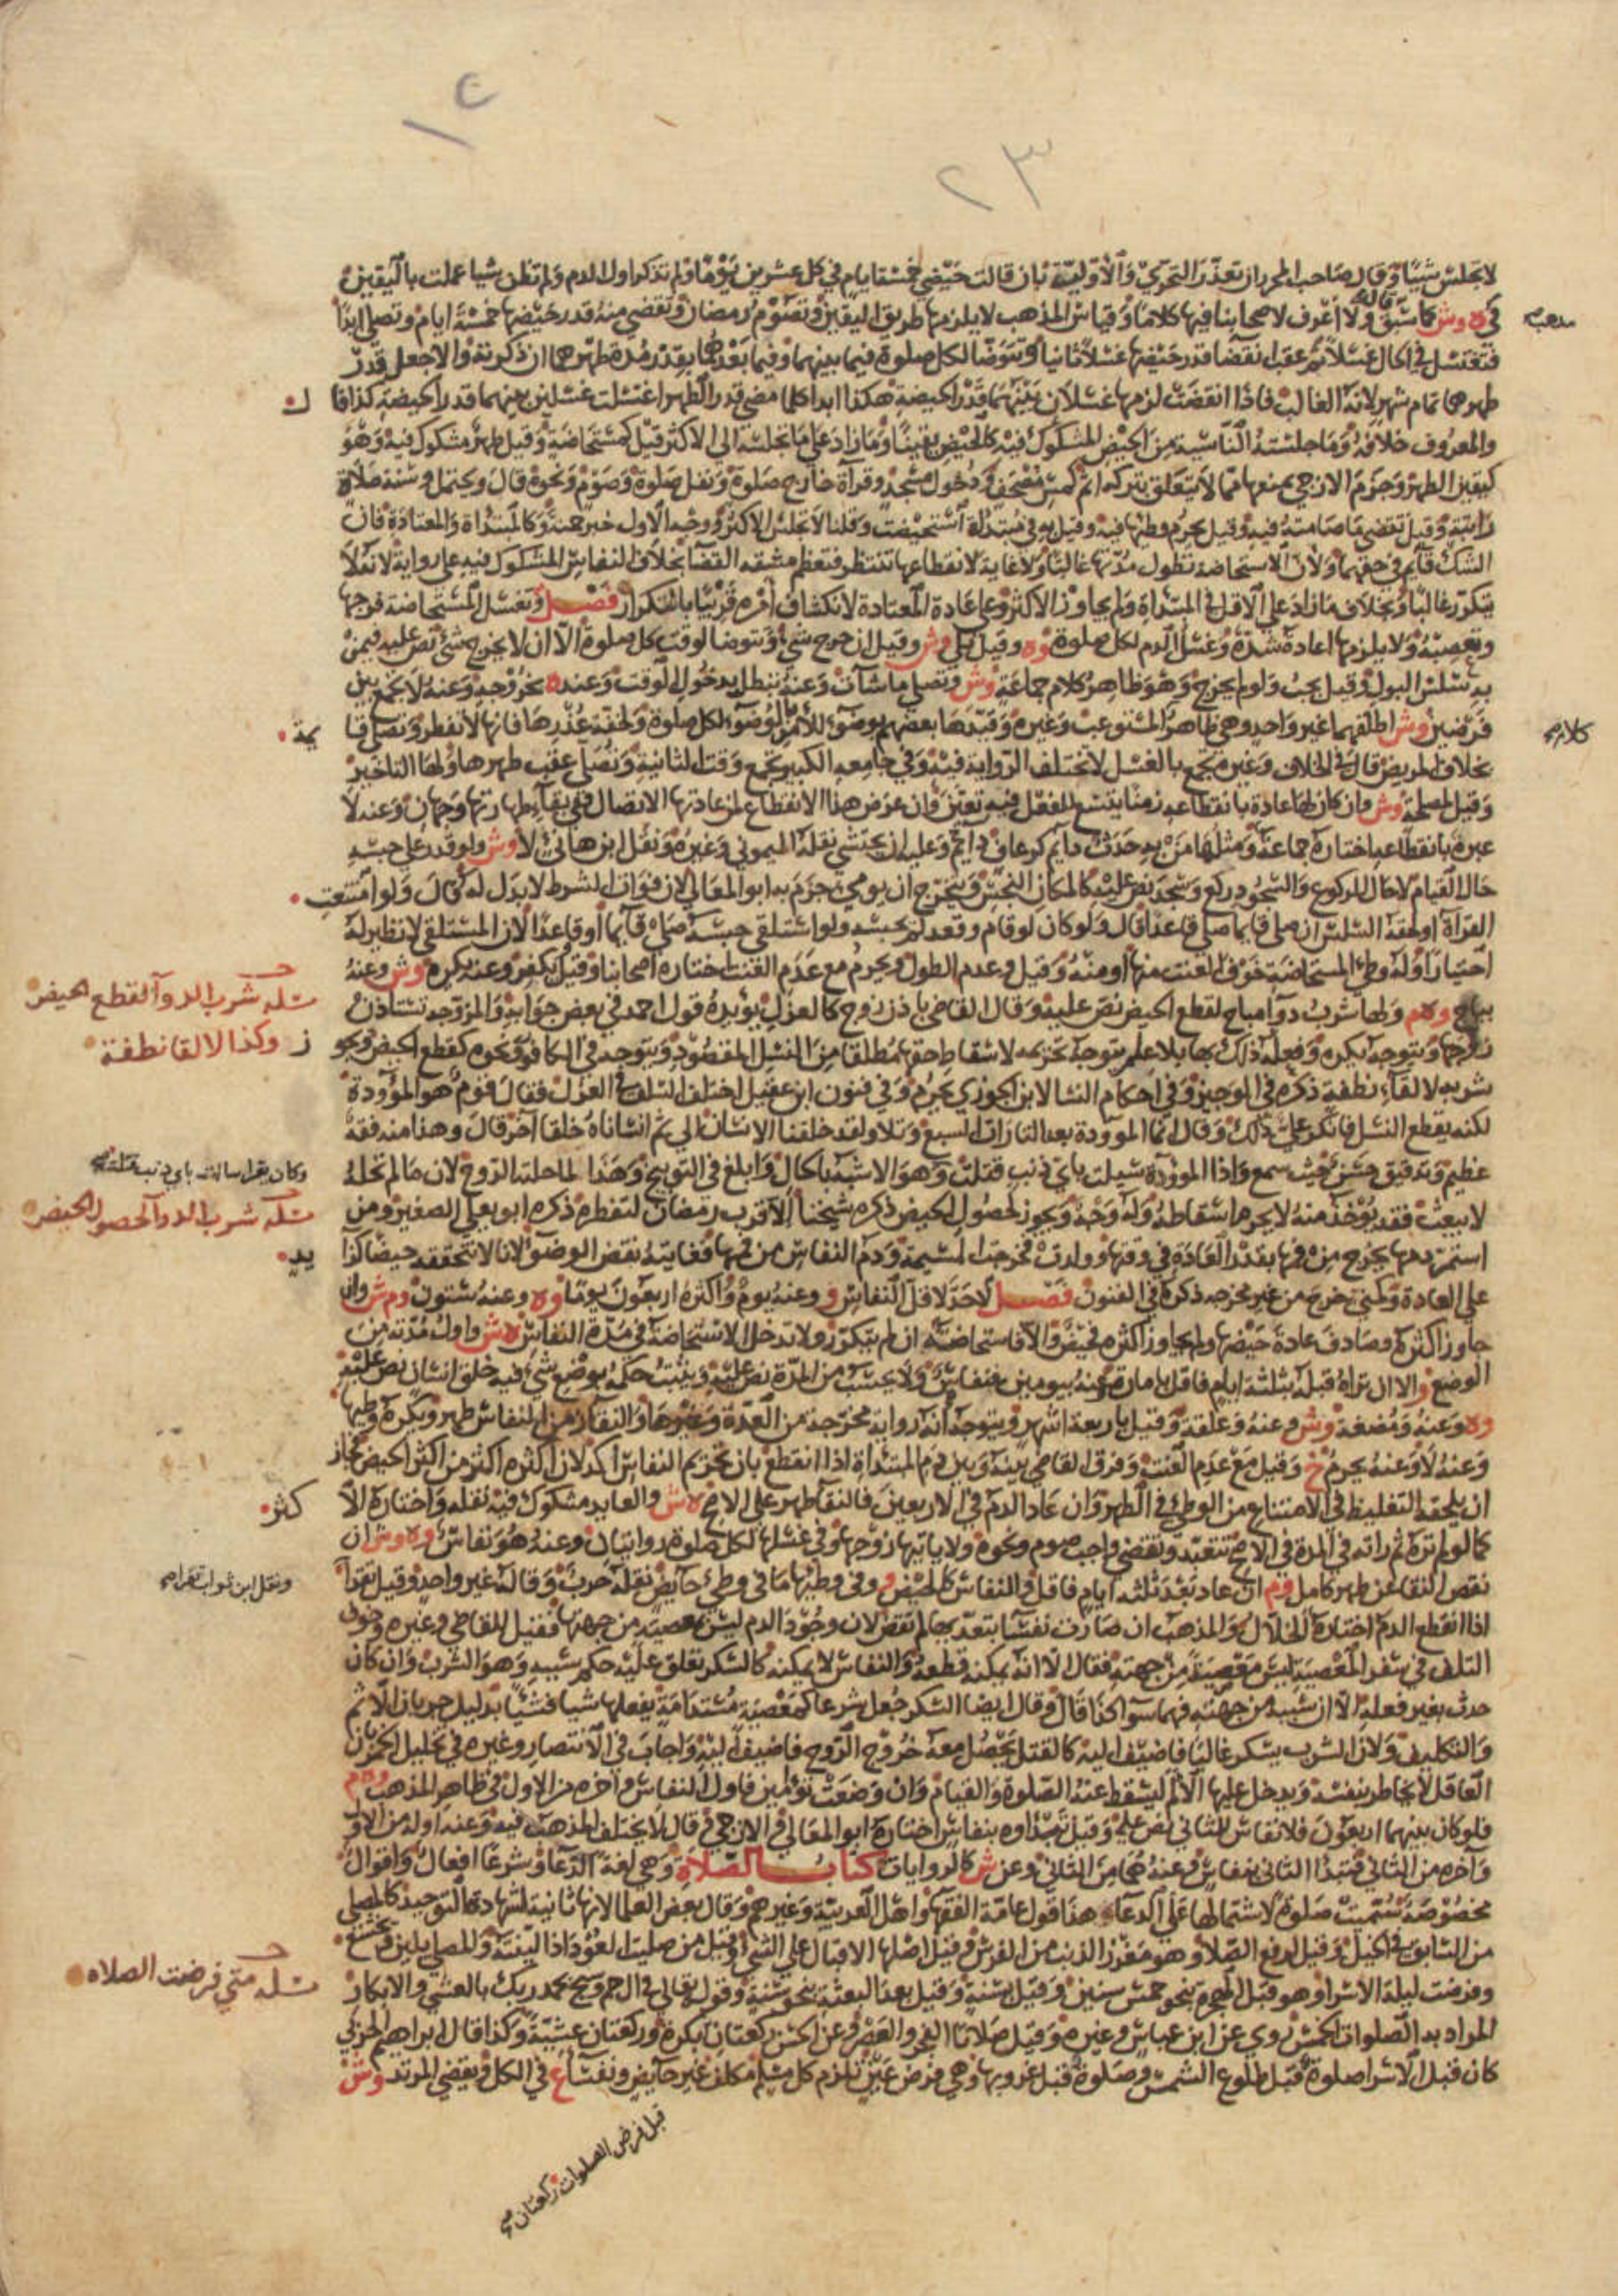 ١٢
٢٣
لا تجلس شيئا وقال صاحب المحرر ان تعذر التحري والاولية بان قالت حيضي خمسة ايام في كل عشرين يوما ولم تذكر اول الدم ولم تظن شيا عملت باليقين
كما سبق قال ولا اعرف لاصحابنا فيها كلاما وقياس المذهب لا يلزمها طريق اليقين وتصوم رمضان وتقضي منه قدر حيضها خمسة ايام وتصلي ابدا
فتغتسل في الحال غسلا ثم عقب انقضا قدر حيضها غسلا ثانيا وتتوضا لكل صلوة فيما بينهما وفيما بعدهما بقدر مدة طهرها ان ذكرته والا جعل قدر
طهرها تمام شهر لانه الغالب فاذا انقضت لزمها غسلان بينهما قدر الحيضة هكذا ابدا كلما مضى قدر الطهر اغتسلت غسلين بينهما قدر الحيضة كذا قال
والمعروف خلافه وما جلسته الناسية من الحيض المشكوك فيه كالحيض يقينا وما زاد على ما تجلسه الى الاكثر قيل كمستحاضة وقيل طهر مشكوك فيه وهو
كيقين الطهر وجزم الازجي بمنعها مما لا يتعلق بتركه اثم كمس مصحف ودخول مسجد وقراة خارج صلوة ونفل صلوة وصوم ونحوه قال ويحتمل وسنة صلاة
راتبة وقيل تقضي ما صامته فيه وقيل يحرم وطيها فيه وقيل به في مبتدأة استحيضت وقلنا لا تجلس الاكثر ووجه الاول خبر حمنة وكالمبتداة والمعتادة فان
الشك قايم في حقهما ولان الاستحاضة تطول مدتها غالبا ولا غاية لانقطاعها تنتظر فتعظم مشقة القضا بخلاف النفاس المشكوك فيه على رواية لانه لا
يتكرر غالبا وبخلاف ما زاد على الاقل في المبتداة ولم يجاوز الاكثر وعلى عادة المعتادة لانكشاف امره قريبا بالتكرار فصل وتغسل المستحاضة فرجها
وتعصبه ولا يلزمها اعادة شده وغسل الدم لكل صلوة وه وقيل بلى وش وقيل ان خرج شي وتتوضا لوقت كل صلوة الا ان لا يخرج شي نص عليه فيمن
به سلس البول وقيل يجب ولو لم يخرج وهو ظاهر كلام جماعة وش وتصلي ما شات وعنه تبطل بدخول الوقت وعنده بخروجه وعنه لا تجمع بين
فرضين وش اطلقهما غير واحد وهي ظاهر المستوعب وغيره وقيدها بعضهم بوضوء للامر بالوضوء لكل صلوة ولخفة عذرها فانها لا تفطر وتصلي قايمة
بخلاف المريض قال في الخلاف وغيره تجمع بالغسل لا تختلف الرواية فيه وفي جامعه الكبير تجمع وقت الثانية وتصلي عقب طهرها ولها التاخير
وقيل لمصلحة وش وان كان لها عادة بانقطاعه زمنا يتسع للفعل فيه تعين وان عرض هذا الانقطاع لمن عادتها الاتصال ففي بقاء طهارتها وجهان وعنه لا
عبرة بانقطاعه اختاره جماعة ومثلها من به حدث دايم كرعاف دايم وعليه ان يحتشي نقله الميموني وغيره ونقل ابن هانئ لا وش ولو قدر على حبسه
حال القيام لا حال الركوع والسجود ركع وسجد نص عليه كالمكان النجس ويتخرج ان يومي جزم به ابو المعالي لان فوات الشرط لا بدل له قال ولو امتنعت
القراة او لحقه السلس ان صلى قايما صلى قاعدا قال ولو كان لو قام وقعد لم يحبسه ولو استلقى حبسه صلى قايما او قاعدا لان المستلقي لا نظير له
اختيارا وله وطئ المستحاضة خوف العنت منها او منه وقيل وعدم الطول ويحرم مع عدم العنت اختاره اصحابنا وقيل يكفر وعنه يكره وش وعنه
يباح وهم ولها شرب دوا مباح لقطع الحيض نص عليه وقال القاضي باذن زوج كالعزل يؤيده قول احمد في بعض جوابه والمزوجة تستاذن
زوجها ويتوجه يكره وفعله ذلك بها بلا علم يتوجه تحريمه لاسقاط حقها مطلقا من النسل المقصود ويتوجه في الكافور ونحوه كقطع الحيض ويجوز
شربه لالقاء نطفة ذكره في الوجيز وفي احكام النسا لابن الجوزي يحرم وفي فنون ابن عقيل اختلف السلف في العزل فقال قوم هو الموؤدة
لكنه يقطع النسل فانكر علي ذلك وقال انما الموودة بعد التارات السبع وتلا ولقد خلقنا الانسان الى ثم انشاناه خلقا آخر قال وهذا منه فقه
عظيم وتدقيق حسن حيث سمع واذا الموؤدة سيلت باي ذنب قتلت وهو الاشبه بالحال وابلغ في التوبيخ وهذا لما حلته الروح لان ما لم تحله
لا يبعث فقد يؤخذ منه لا يحرم اسقاطه وله وجه ويجوز لحصول الحيض ذكره شيخنا الا قرب رمضان لتفطره ذكره ابو يعلى الصغير ومن
استمر دمها يخرج من فمها بقدر العادة في وقتها وولدت فخرجت المشيمة ودم النفاس من فمها فغايته نقض الوضوء لانا لا نتحققه حيضا كزايد
على العادة وكمني خرج من غير مخرجه ذكره في الفنون فصل لا حد لاقل النفاس و وعنه يوم واكثره اربعون يوما وه وعنه ستون وم ش وان
جاوز اكثره وصادف عادة حيضها ولم يجاوز اكثره فحيض والا فاستحاضة ان لم يتكرر ولا تدخل الاستحاضة في مدة النفاس ه ش واول مدته من
الوضع و الا ان تراه قبله بثلثة ايام فاقل بامارة وعنه بيومين فنفاس ولا يحسب من المدة نص عليه ويثبت حكمه بوضع شي فيه خلق انسان نص عليه
وه وعنه ومضغة وش وعنه وعلقة وقيل باربعة اشهر ويتوجه انه رواية مخرجة من العدة وغيرها والنقا زمن النفاس طهر ويكره وطيها
وعنه لا وعنه يحرم خ وقيل مع عدم العنت وفرق القاضي بينه وبين دم المبتداة اذا انقطع بان تحريم النفاس اكد لان اكثره اكثر من اكثر الحيض فجاز
ان يلحقه التغليظ في الامتناع من الوطي في الطهر وان عاد الدم في الاربعين فالنقا طهر على الاصح ه ش والعايد مشكوك فيه نقله واختاره الاكثر
كما لو لم تره ثم راته في المدة في الاصح تتعبد وتقضي واجب صوم ونحوه ولا ياتيها زوجها وفي غسلها لكل صلوة روايتان وعنه هو نفاس وه وش ان
نقص النقا عن طهر كامل وم ان عاد بعد ثلثه ايام فاقل والنفاس كالحيض و وفي وطيها ما في وطي حايض نقله حرب وقاله غير واحد وقيل تقرأ
اذا انقطع الدم اختاره الخلال والمذهب ان صارت نفسا بتعديها لم تقض لان وجود الدم ليس معصية من جهتها فقيل للقاضي وغيره وخوف
التلف في سفر المعصية ليس معصية من جهته فقال الا انه يمكنه قطعه والنفاس لا يمكنه كالسكر تعلق عليه حكم سببه وهو الشرب وان كان
حدث بغير فعله الا ان سببه من جهته فهما سوا كذا قال وقال ايضا السكر جعل شرعا كمعصية مستدامة يفعلها شيا فشيئا بدليل جريان الاثم
والتكليف ولان الشرب يسكر غالبا فاضيف اليه كالقتل يحصل معه خروج الروح فاضيف اليه واجاب في الانتصار وغيره في تخليل الخمر بان
العاقل لا يخاطر بنفسه ويدخل عليها الالم ليسقط عنه الصلوة والقيام وان وضعت توءمين فاول النفاس واخره من الاول في ظاهر المذهب وه م
فلو كان بينهما اربعون فلا نفاس للثاني نص عليه وقيل تبداوه بنفاس اختاره ابو المعالي والازجي وقال لا يختلف المذهب فيه وعنه اوله من الاول
وآخره من الثاني فتبدا الثاني بنفاس وعنه هما من الثاني وعن ش كالروايات كتاب الصلاة وهي لغة الدعا وشرعا افعال واقوال
مخصوصة سميت صلوة لاشتمالها على الدعاء هذا قول عامة الفقها واهل العربية وغيرهم وقال بعض العلما لانها ثانية لشهادة التوحيد كالمصلي
من السابق في الخيل وقيل لرفع الصلا وهو مغرز الذنب من الفرس وقيل اصلها الاقبال على الشي وقيل من صليت العود اذا لينته والمصلي يلين ويخشع
وفرضت ليلة الاسرا وهو قبل الهجرة بنحو خمس سنين وقيل بسنة وقيل بعد البعثة بنحو سنة وقوله تعالى في ال حم وسبح بحمد ربك بالعشي والابكار
المراد به الصلوات الخمس روي عن ابن عباس وغيره وقيل صلاتا الفجر والعصر وعن الحسن ركعتان بكرة وركعتان عشية وكذا قال ابراهيم الحربي
كان قبل الاسرا صلوة قبل طلوع الشمس وصلوة قبل غروبها وهي فرض عين تلزم كل مسلم مكلف غير حايض ونفسا ع في الكل ويقضي المرتد وش
مذهب
كلام
مسئلة شرب الدوآ لقطع الحيض
وكذا لالقا نطفة
وكان يقرا سالت باي ذنب قتلت
مسئلة شرب الدوآ لحصول الحيض
ونقل ابن ثواب تقرا
مسئلة متي فرضت الصلاه
قبل فرض الصلوات ركعتان